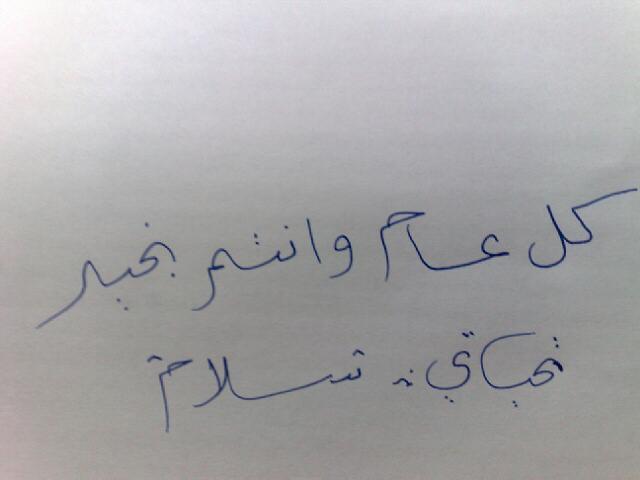 كل عام وانتم بخير
تحياتي :